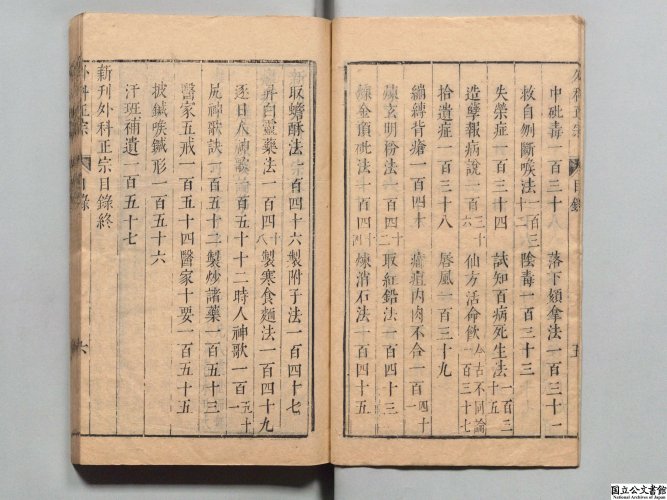 中砒毒一百三十八 落下頦拿法一百三十一
救自刎斷喉法一百三十二 陰毒一百三十三
失榮症一百三十四 試知百病死生法一百三十五
造孽報病說一百三十六 仙方活命飲古今不同論一百三十七
拾遺症一百三十八 唇風一百三十九
綳縛背瘡一百四十 瘡瘟內肉不合一百四十一
煉玄明粉法一百四十二 取紅鉛法一百四十三
煉金頂砒法一百四十四 煉消石法一百四十五
取蟾酥法一百四十六 製附子法一百四十七
昇白靈藥法一百四十八 製寒食麵法一百四十九
逐日人神歌一百五十 十二時人神歌一百五十一
尻神歌訣一百五十二 製炒諸藥一百五十三
醫家五戒一百五十四 醫家十要一百五十五
披鍼喉鍼形一百五十六
汗班補遺一百五十七
新刊外科正宗目錄終
外科正宗 目錄 五
外科正宗 目錄 六
国立公文書館
National Archives of Japan